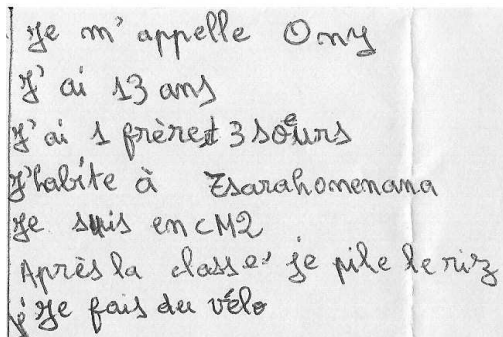 Je m'appelle Ony
J'ai 13 ans
J'ai 1 frère et 3 soeurs
J'habite à Tsarahonenana
Je suis en CM2
Après la classe je pile le riz
Je fais du vélo